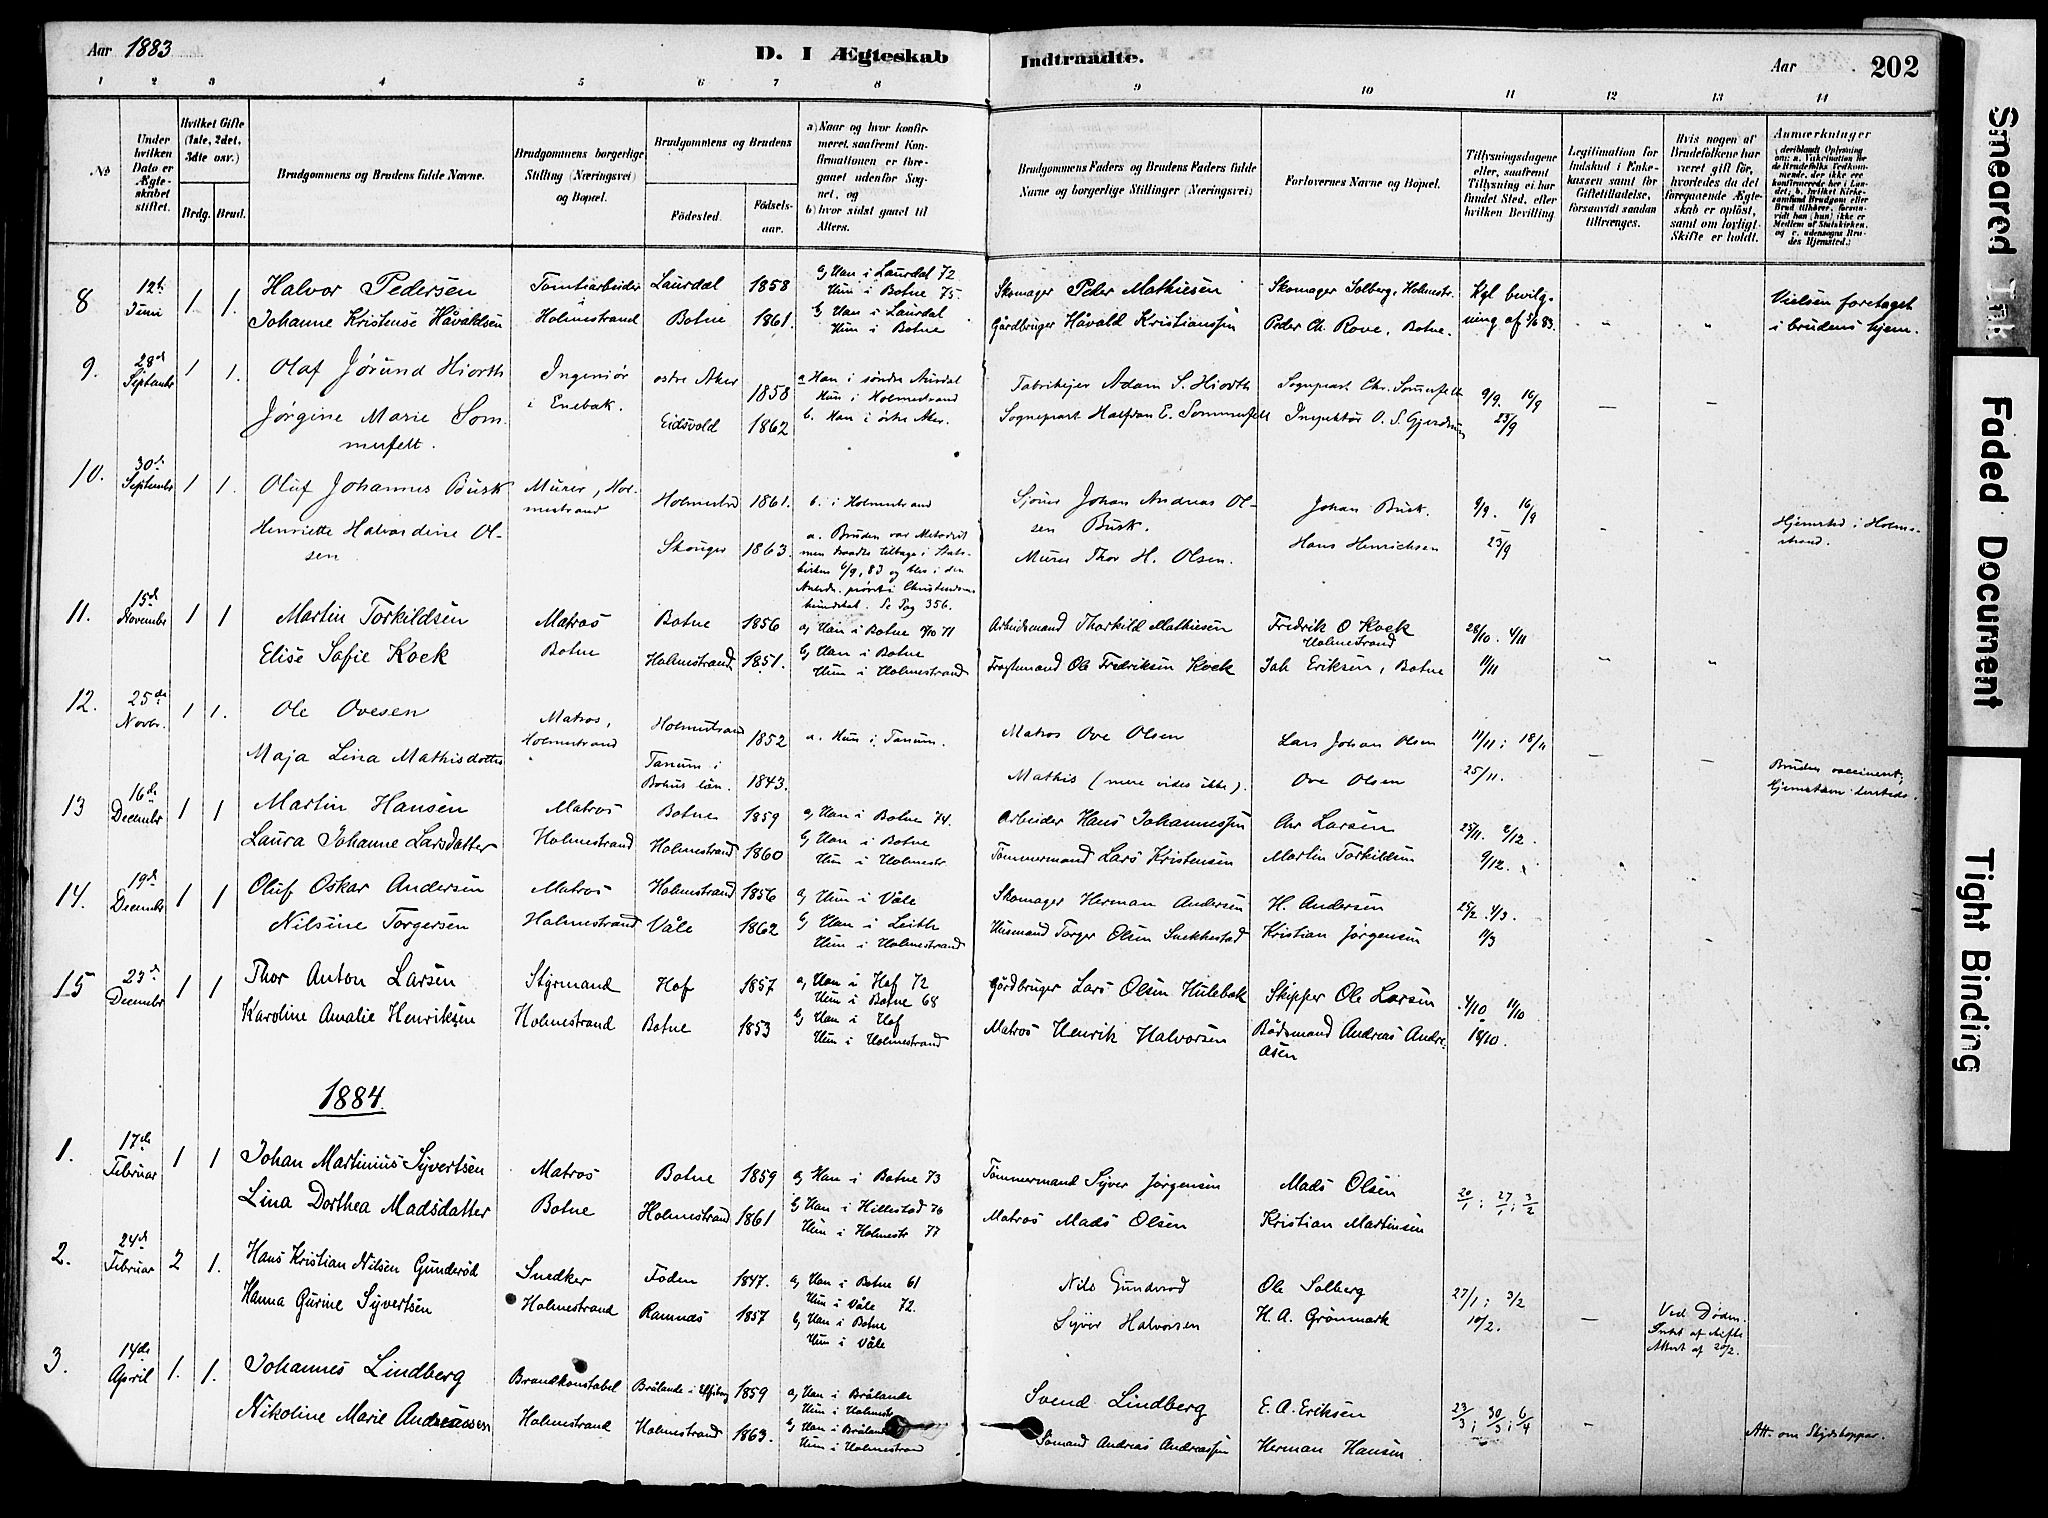 Aar 1883
D. I Ægteskab Indtraadte.
Aar
202
1 2 3 4 5 6 7 8 9 10 11 12 13 14
No
Under hvilken Dato er Ægteskabet stiftet.
Hvilket Gifte (1ste, 2det, 3die osv.)
Brdg. Brud.
Brudgommens og Brudens fulde Navne.
Brudgommens borgerlige Stilling (Næringsvei) og Bopæl.
Brudgommens og Brudens
Fødested.
Fødselsaar.
a) Naar og hvor konfirmeret, saafremt Konfirmationen er foregaaet udenfor Sognet, og
b) hvor sidst gaaet til Alters.
Brudgommens Faders og Brudens Faders fulde Navne og borgerlige Stillinger (Næringsvei)
Forlovernes Navne og Bopæl.
Tillysningsdagene eller, saafremt Tillysning ei har fundet Sted, efter hvilken Bevilling
Legitimation for Indskud i Enkekassen samt for Giftetilladelse, forsaavidt saadan tiltrænges.
Hvis nogen af Brudefolkene har været gift før, hvorledes da det foregaaende Ægteskab er opløst, samt om lovligt Skifte er holdt.
Anmærkninger
8 12te Juni 1 1.
Halvor Pedersen
Johanne Kristense Håvaldsen
Tomtiarbeider Holmestrand
Laurdal 1858
Botne 1861.
a, Han i Laurdal 72
Hun i Botne 75.
b, Han i Laurdal
Hun i Botne
Skomager Peder Mathiesen
Gårdbruger Håvald Kristianssen
Skomager Solberg, Holmestr.
Peder Ch. Rove, Botne.
Kgl bevilgning af 5/6 83.
Vielsen foretaget i brudens hjem.
9. 28d September 1 1.
Olaf Jørund Hiorth
Jørgine Marie Sommerfelt.
Ingeniør i Enebak.
østre Aker 1858
Eidsvold 1862
a Han i søndre Aurdal
Hun i Holmestrand
b. Han i østre Aker.
Fabrikejer Adam S. Hiorth
Sognepræst Halfdan E. Sommerfelt
Sognepræst Chr. Sommerfelt
Inspektør O. S. Gjerdrum
9/9. 16/9
23/9
10. 30te September 1 1.
Oluf Johannes Busk
Henriette Halvardine Olsen
Murer, Holmestrand
Holmestrd 1861.
Skouger 1863.
b. i Holmestrand
a. Bruden var Metodist men traadte tilbage i Statskirken 6/9, 83 og blev i den Anledn. prøvet i Christendomskundskab. Se Pag 356.
Sjøm Johan Andreas Olsen Busk.
Murer Thor H. Olsen.
Johan Busk.
Hans Henrichsen
9/9. 16/9
23/9
Hjemsted i Holmestrand.
11. 15d November 1 1
Martin Torkildsen
Elise Sofie Kock
Matros Botne
Botne 1856
Holmestrand. 1851.
a, Han i Botne 1/10 71
b, Han i Botne
Hun i Holmestrand
Arbeidsmand Thorkild Mathiesen
Fragtemand Ole Fredriksen Kock
Fredrik O Kock Holmestrand
Joh Eriksen, Botne
28/10. 4/11
11/11
12. 25de Novbr. 1 1.
Ole Ovesen
Maja Lina Mathisdotter
Matros, Holmestrand
Holmestrand 1852
Tanum i Bohus län. 1843.
a. Hun i Tanum.
Matros Ove Olsen
Mathis (mere vides ikke).
Lars Johan Olsen
Ove Olsen
11/11; 18/11
25/11.
Bruden vaccineret; Hjemstavn densteds.
13 16de December 1 1
Martin Hansen
Laura Johanne Larsdatter
Matros Holmestrand
Botne 1859
Holmestrand 1860
a, Han i Botne 74.
b, Han i Botne
Hun i Holmestr.
Arbeider Hans Johannessen
Tømmermand Lars Kristensen
Anr Larsen
Martin Torkildsen
25/11. 2/12.
9/12.
14. 19d December 1 1
Oluf Oskar Andersen
Nilsine Torgersen
Matros Holmestrand
Holmestrand 1856
Våle 1862
a, Hun i Våle
b, Han i Leith
Hun i Holmestrand
Skomager Herman Andersen
Husmand Torger Olsen Snekkestad
H. Andersen
Kristian Jørgensen
25/2. 4/3.
11/3
15 23d December 1 1
Thor Anton Larsen
Karoline Amalie Henriksen
Styrmand Holmestrand
Hof 1857
Botne 1853
a, Han i Hof 72
Hun i Botne 68
b, Han i Hof
Hun i Holmestrand
Gårdbruger Lars Olsen Hulebak
Matros Henrik Halvorsen
Skipper Ole Larsen
Bådsmand Andreas Andreasen
4/10 11/10
18/10.
1884.
1. 17de Februar 1 1
Johan Martinius Syvertsen
Lina Dorthea Madsdatter
Matros Botne
Botne 1859
Holmestrand 1861
a, Han i Botne 73
b, Han i Hillestad 76
Hun i Holmestr 77
Tømmermand Syver Jørgensen
Matros Mads Olsen
Mads Olsen
Kristian Martinsen
20/1; 27/1; 3/2
2. 24de Februar 2 1.
Hans Kristian Nilsen Gunderød
Hanna Gurine Syvertsen
Snedker Holmestrand
Foden 1847.
Ramnes 1857
a, Han i Botne 61
Hun i Våle 72.
b, Han i Botne
Hun i Våle
Nils Gunderød
Syver Halvorsen
Ole Solberg
H. A. Grönmark
27/1; 3/2
10/2.
Ved Døden.
Attest af 20/2.
3. 14de April 1. 1.
Johannes Lindberg
Nikoline Marie Andreassen
Brandkonstabel Holmestrand
Brålanda i Elfsborg 1859
Holmestrand 1863.
a, Han i Brålanda
Hun i Holmestr
b, Han i Brålanda
Hun i Holmestrand
Svend Lindberg
Sømand Andreas Andreassen
E. A. Eriksen
Herman Hansen
23/3; 30/3; 6/4
Att. om Skydskopper.
Smeared Ink
Faded Document
Tight Binding